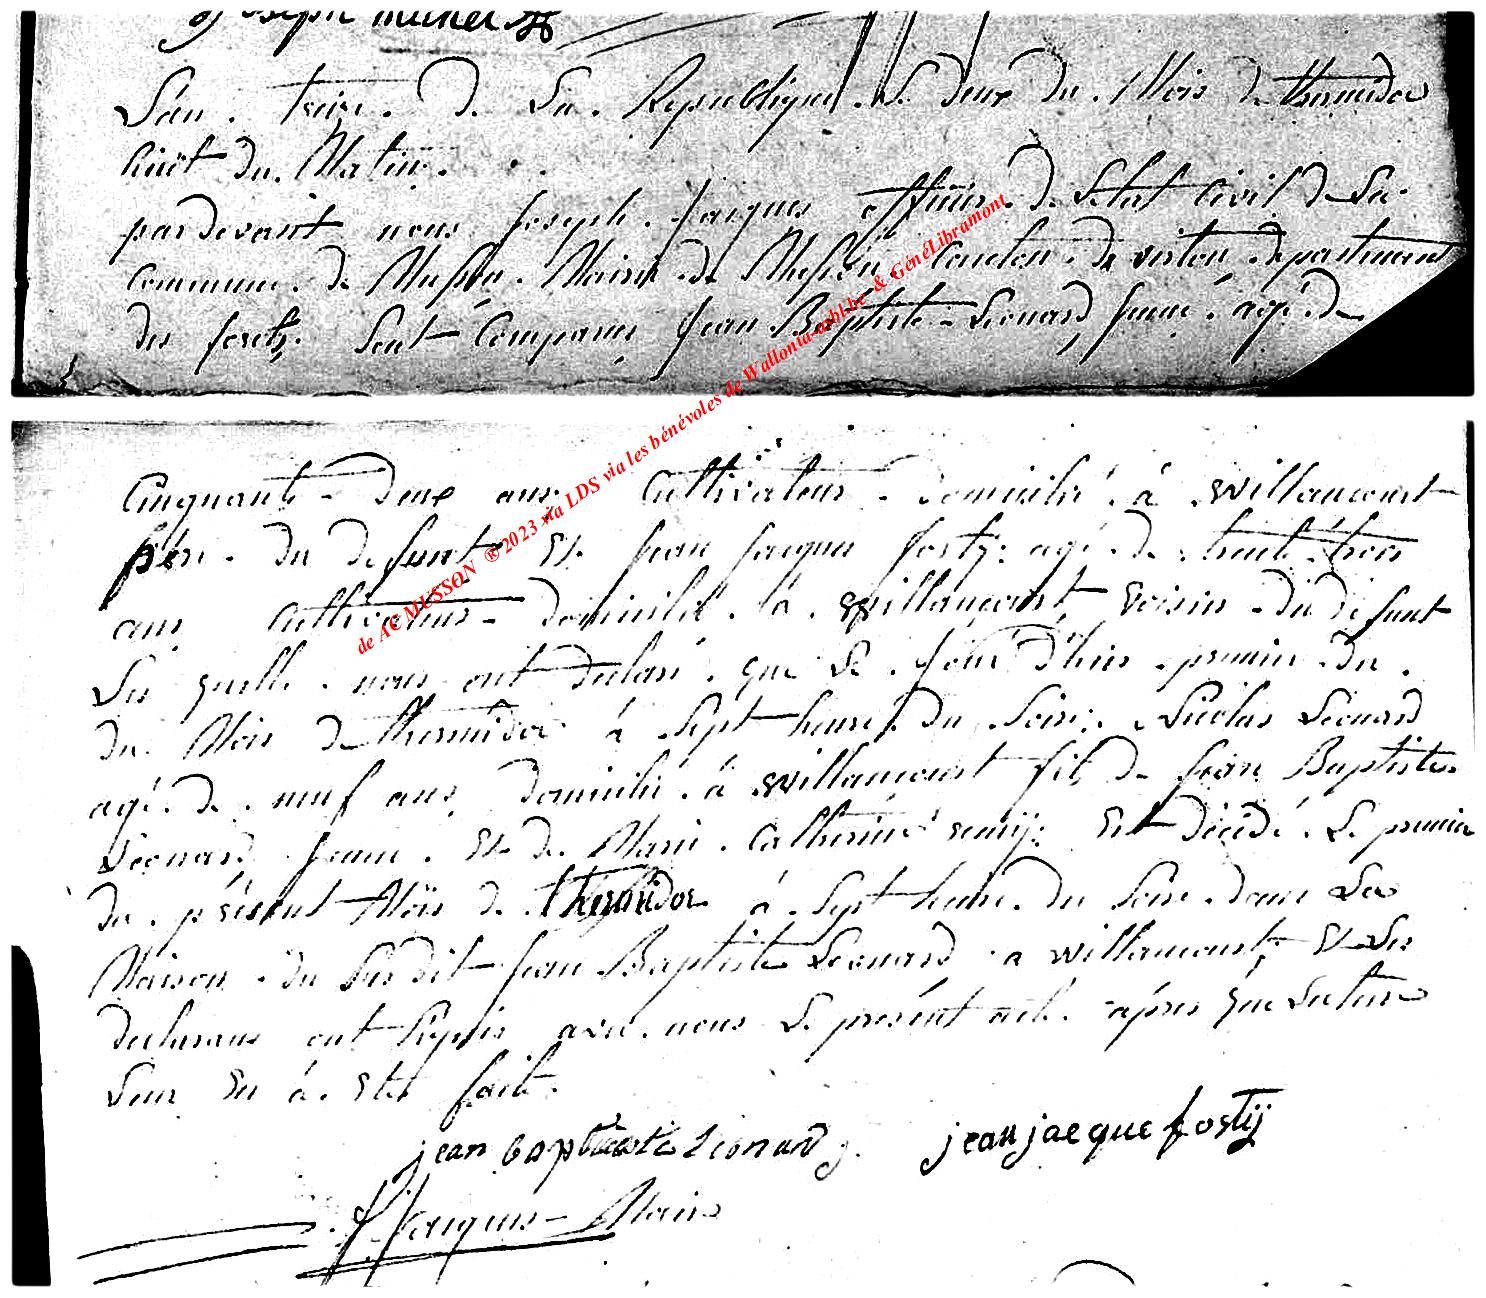 joseph michel
L'an treize de La Republique Le deux du Mois de thermidor
huit du Matin.
pardevant nous joseph jacques officier de L'etat Civil de La
commune de Musson Mairie de Musson Canton de virton departement
des forets, Sont Comparus jean Baptiste Leonard jeune agé de
Cinquante deux ans Cultivateur domicilié à willancourt
pére du defunt Et jean jacques fostÿ agé de trente trois
ans Cultivateur domicilié à willancourt, voisin du defunt
Les quelle nous ont declaré que Le jour d'hier premier du
du Mois de thermidor à Sept heures du Soire, Nicolas Leonard
agé de neuf ans domicilié à willancourt fils de jean Baptiste
Leonard jeune Et de Marie Catherine remÿ: Est décédé Le premier
du présent Mois de thermidor à Sept heure du Soire dans La
Maison du Sus dit jean Baptiste Leonard a willancourt, Et Les
declarans ont Signés avec nous Le présent acte aprés que Lecture
Leur En à Eté faite.
jean baptiste Léonard jeanjacque fostÿ
J. Jacques Maire
de AC MUSSON ®2023 via LDS via les bénévoles de Wallonia-asbl.be & GénéLibramont